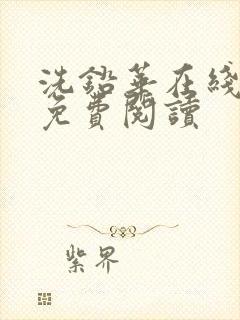 洗鉛華在綫
免費閱讀
紫界